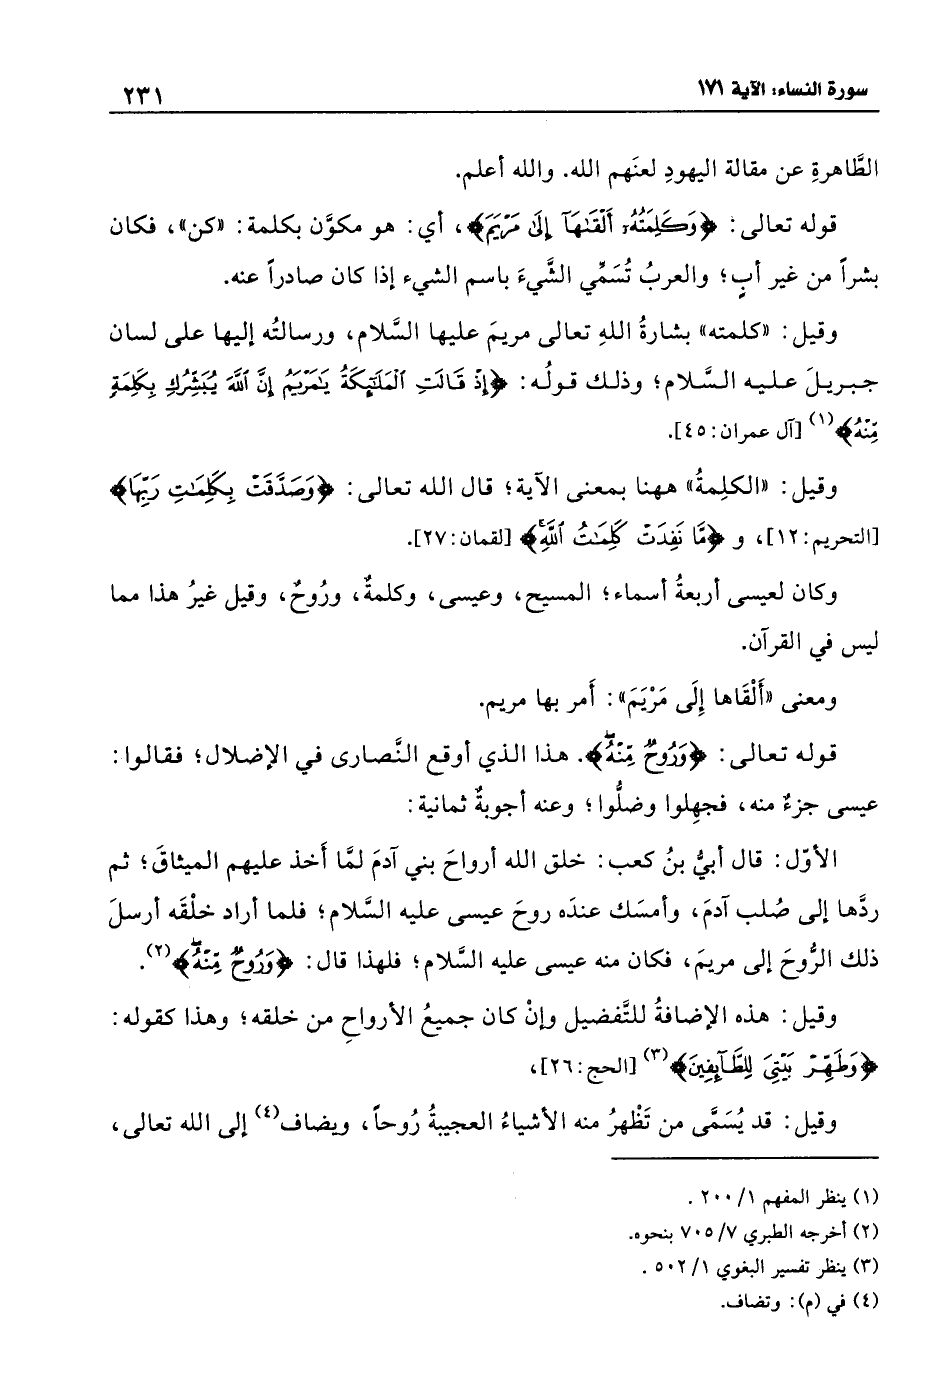 سورة النساء: الآية ١٧١
٢٣١
الطَّاهرةِ عن مقالة اليهودِ لعنَهم الله. والله أعلم.
قوله تعالى: ﴿وَكَلِمَتُهُۥٓ أَلْقَىٰهَآ إِلَىٰ مَرْيَمَ﴾، أي: هو مكوَّن بكلمة: «كن»، فكان
بشراً من غير أبٍ؛ والعربُ تُسَمِّي الشَّيءَ باسم الشيء إذا كان صادراً عنه.
وقيل: «كلمته» بشارةُ اللهِ تعالى مريمَ عليها السَّلام، ورسالتُه إليها على لسان
جبريلَ عليه السَّلام؛ وذلك قولُه: ﴿إِذْ قَالَتِ ٱلْمَلَـٰٓئِكَةُ يَـٰمَرْيَمُ إِنَّ ٱللَّهَ يُبَشِّرُكِ بِكَلِمَةٍ
مِّنْهُ﴾(١) [آل عمران: ٤٥].
وقيل: «الكلِمةُ» ههنا بمعنى الآية؛ قال الله تعالى: ﴿وَصَدَّقَتْ بِكَلِمَـٰتِ رَبِّهَا﴾
[التحريم: ١٢]، و ﴿مَّا نَفِدَتْ كَلِمَـٰتُ ٱللَّهِۚ﴾ [لقمان: ٢٧].
وكان لعيسى أربعةُ أسماء؛ المسيح، وعيسى، وكلمةٌ، ورُوحٌ، وقيل غيرُ هذا مما
ليس في القرآن.
ومعنى «أَلْقَاها إِلَى مَرْيَمَ»: أَمر بها مريم.
قوله تعالى: ﴿وَرُوحٌ مِّنْهُۖ﴾. هذا الذي أوقع النَّصارى في الإضلال؛ فقالوا:
عيسى جزءٌ منه، فجهِلوا وضلُّوا؛ وعنه أجوبةٌ ثمانية:
الأوّل: قال أبيُّ بنُ كعب: خلق الله أرواحَ بني آدمَ لمَّا أَخذ عليهم الميثاقَ؛ ثم
ردَّها إلى صُلب آدمَ، وأمسَك عندَه روحَ عيسى عليه السَّلام؛ فلما أراد خلْقَه أرسلَ
ذلك الرُّوحَ إلى مريمَ، فكان منه عيسى عليه السَّلام؛ فلهذا قال: ﴿وَرُوحٌ مِّنْهُۖ﴾(٢).
وقيل: هذه الإضافةُ للتَّفضيل وإنْ كان جميعُ الأرواحِ من خلقه؛ وهذا كقوله:
﴿وَطَهِّرْ بَيْتِىَ لِلطَّآئِفِينَ﴾(٣) [الحج: ٢٦]،
وقيل: قد يُسَمَّى من تَظْهرُ منه الأشياءُ العجيبةُ رُوحاً، ويضاف(٤) إلى الله تعالى،
(١) ينظر المفهم ١/ ٢٠٠ .
(٢) أخرجه الطبري ٧/ ٧٠٥ بنحوه.
(٣) ينظر تفسير البغوي ١/ ٥٠٢ .
(٤) في (م): وتضاف.